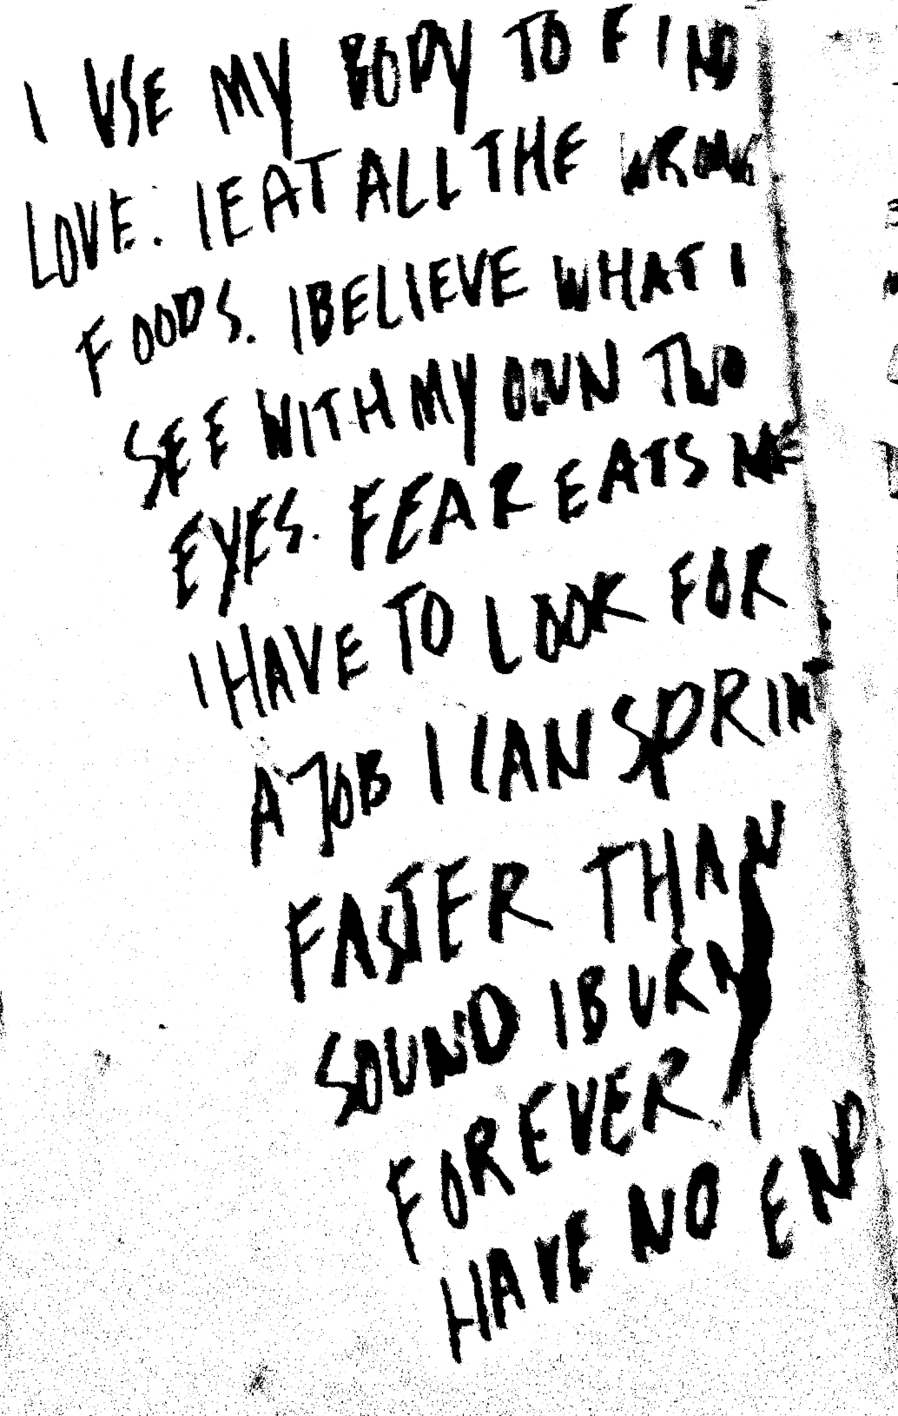 I USE MY BODY TO FIND
LOVE. I EAT ALL THE WRONG
FOODS. I BELIEVE WHAT I
SEE WITH MY OWN TWO
EYES. FEAR EATS ME
I HAVE TO LOOK FOR
A JOB I CAN SPRINT
FASTER THAN
SOUND I BURN
FOREVER I
HAVE NO END